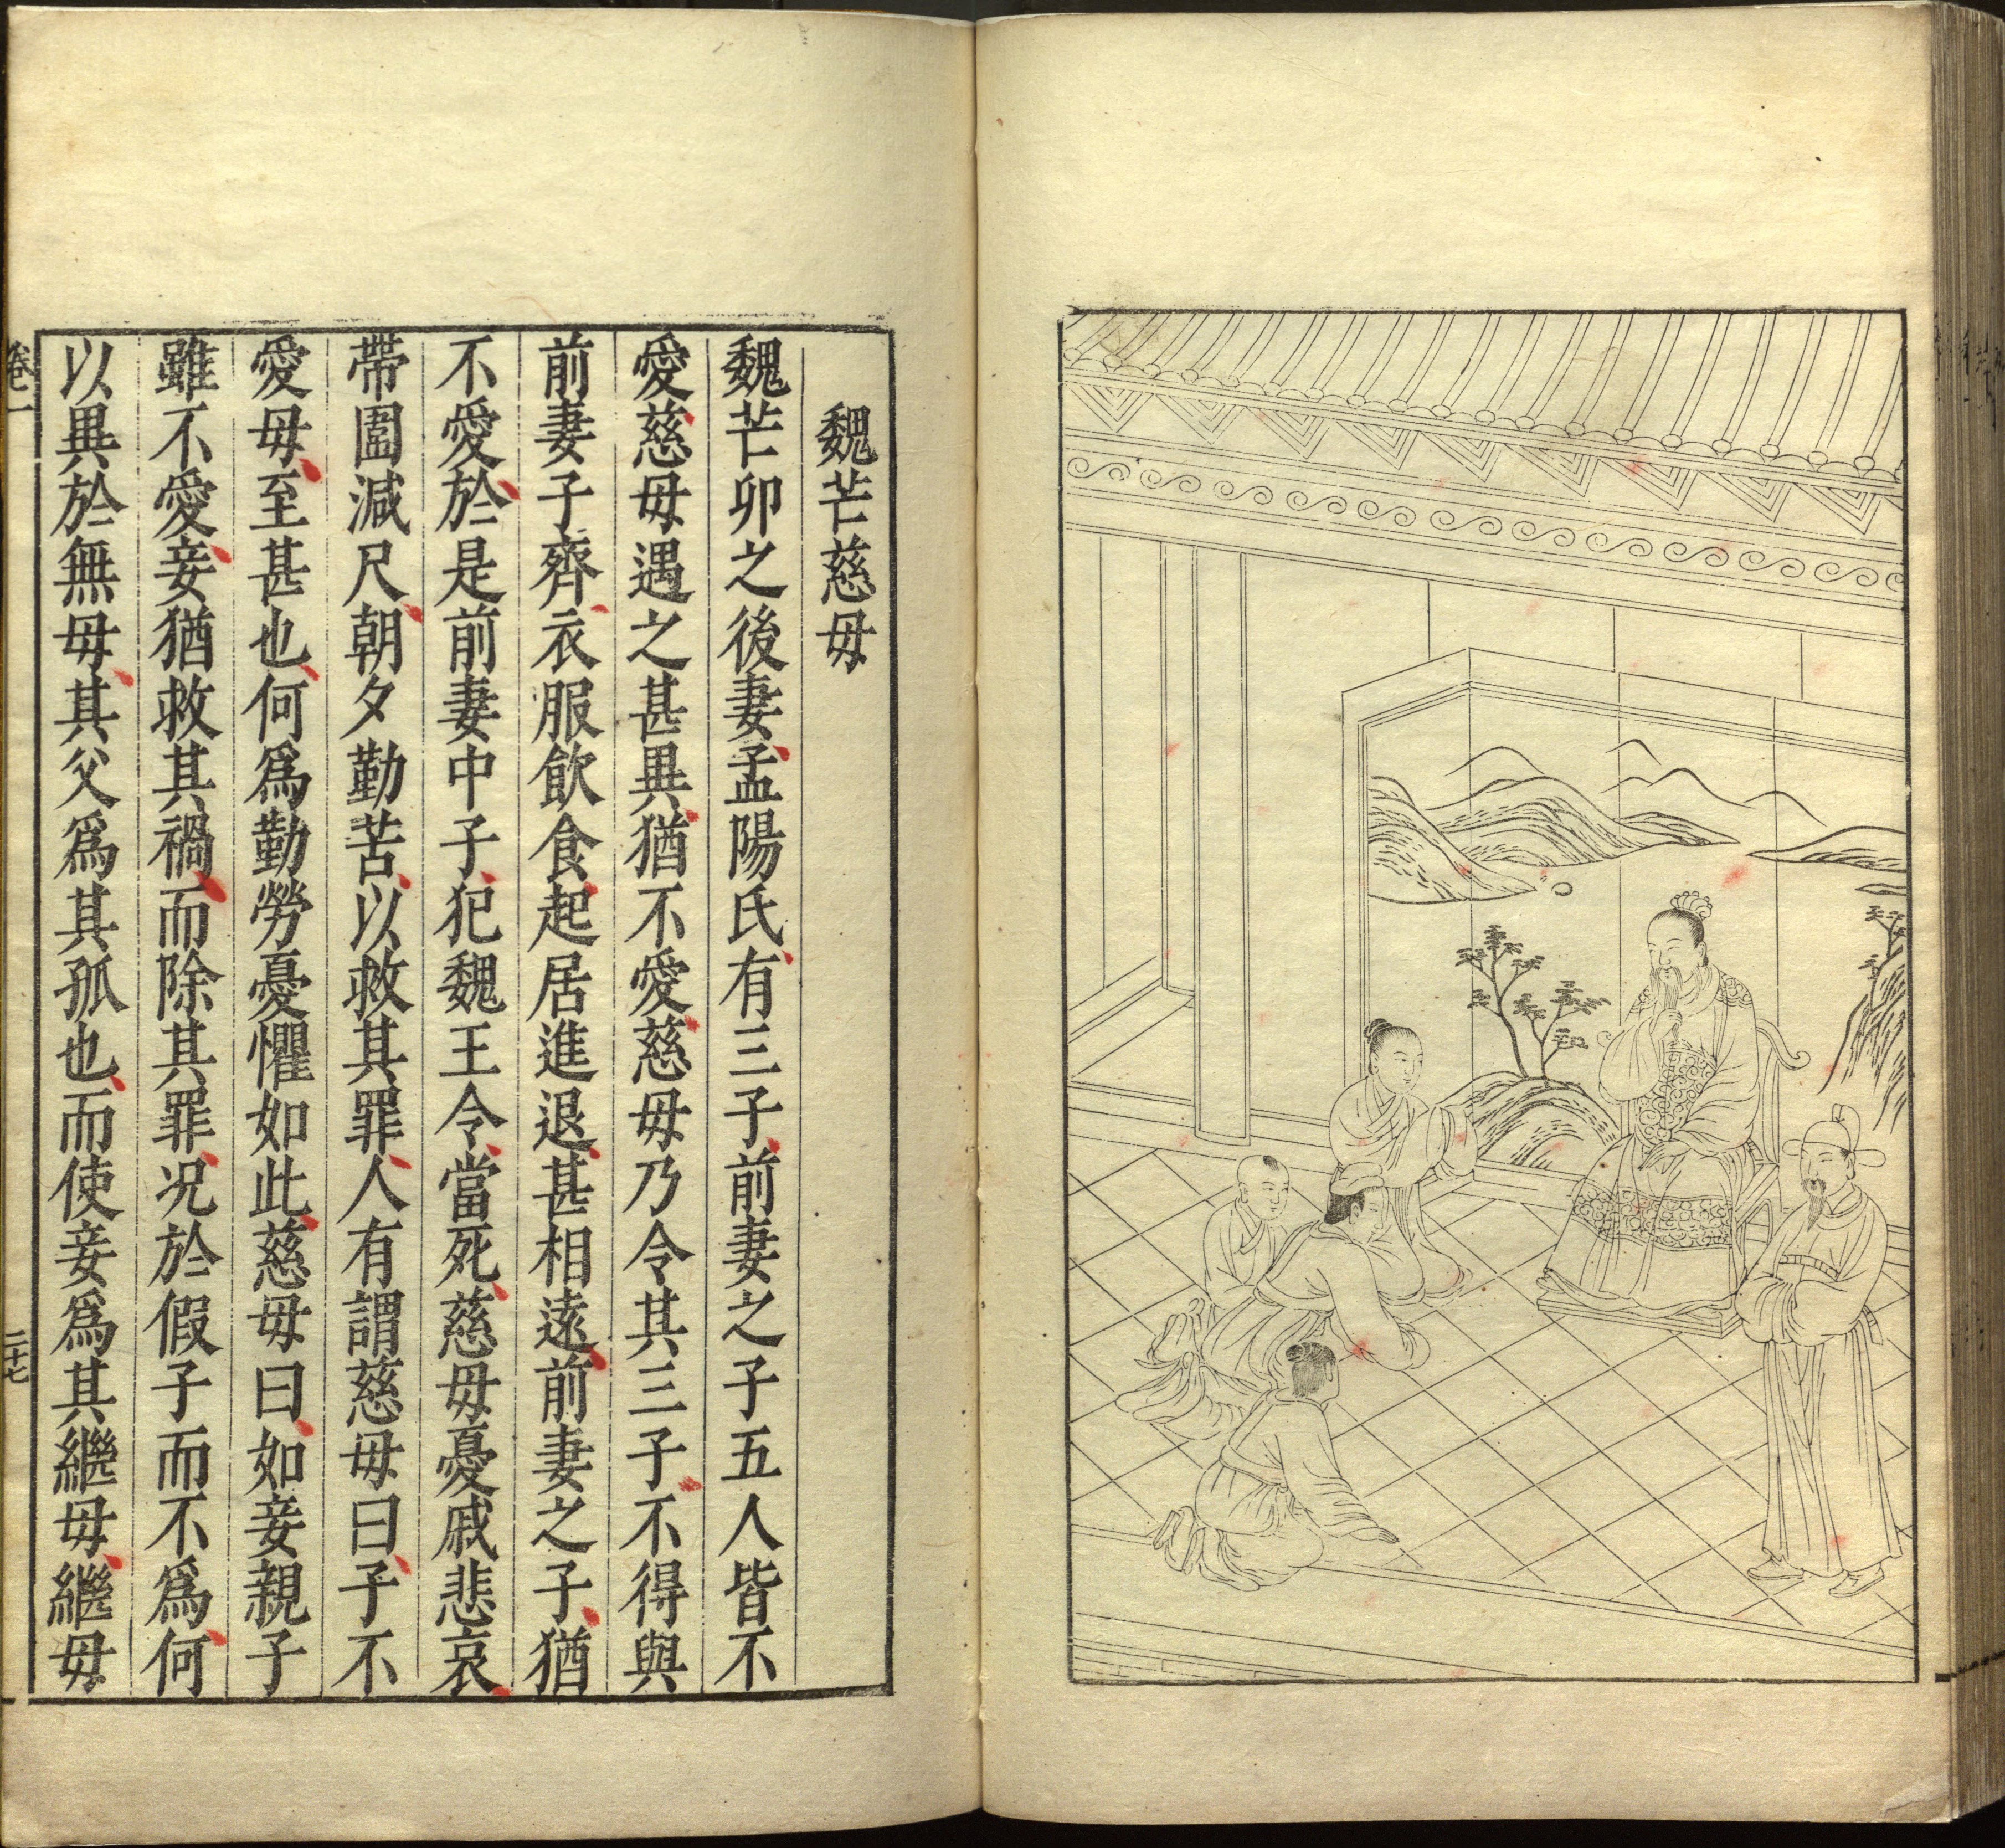 魏芒慈母
魏芒卯之後妻孟陽氏有三子前妻之子五人皆不
愛慈母遇之甚異猶不愛慈母乃令其三子不得與
前妻子齊衣服飲食起居進退甚相遠前妻之子猶
不愛於是前妻中子犯魏王令當死慈母憂戚悲哀
帶圍減尺朝夕勤苦以救其罪人有謂慈母曰子不
愛母至甚也何爲勤勞憂懼如此慈母曰如妾親子
雖不愛妾猶救其禍而除其罪况於假子而不爲何
以異於無母其父爲其孤也而使妾爲其繼母繼母
卷一
二十七